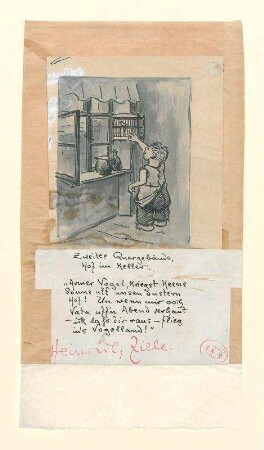 Zweites Quergebäude,
Hof im Keller.
„Armer Vogel, Kriegst Keene
Sonne uff unsen dustern
Hof! Un wenn mir ooch
Vata uffn Abend verhaut
- ick lass dir raus - flieg
ins Vogelland!"
Heinrich Zille